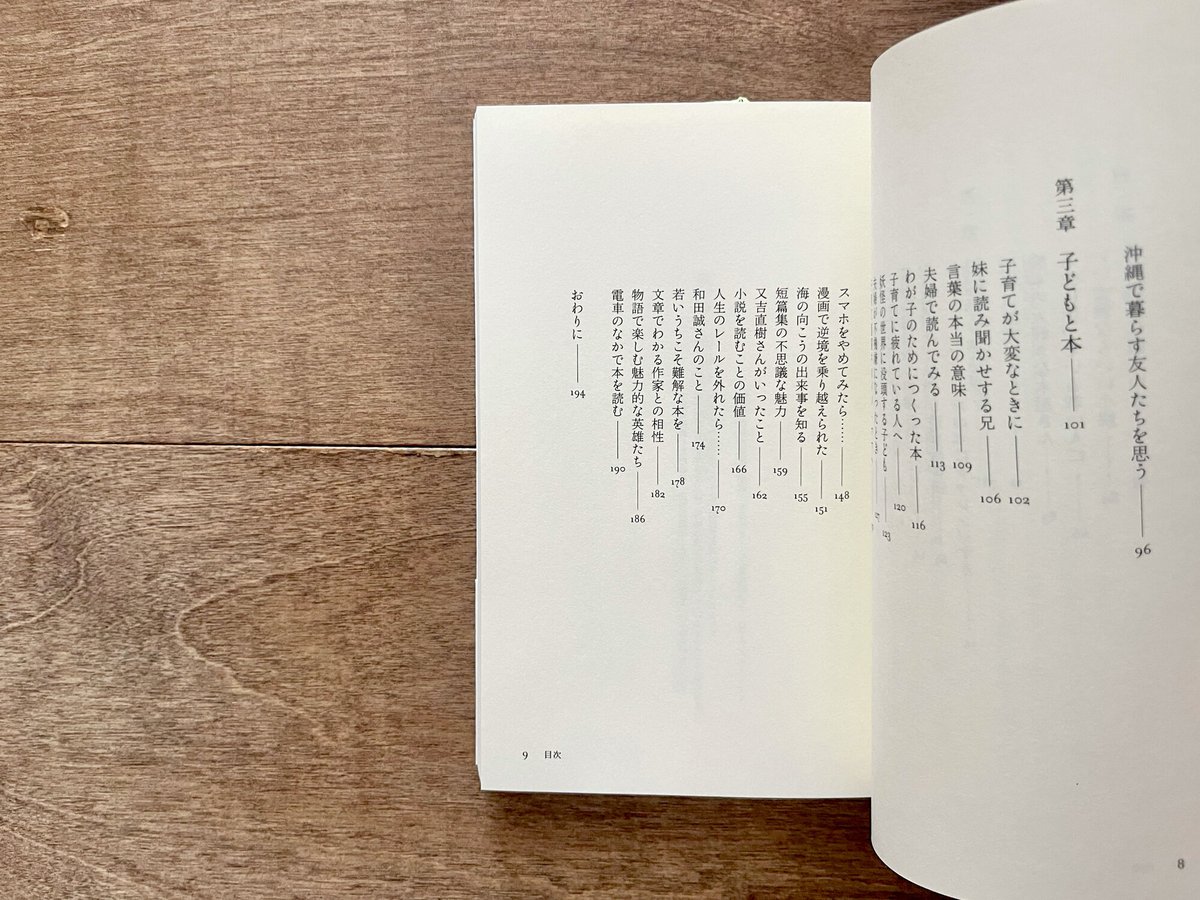 沖縄で暮らす友人たちを思う――96
第三章 子どもと本――101
子育てが大変なときに――102
妹に読み聞かせする兄――106
言葉の本当の意味――109
夫婦で読んでみる――113
わが子のためにつくった本――116
子育てに疲れている人へ――120
妖怪の世界に没頭する子ども――123
8
スマホをやめてみたら……――148
漫画で逆境を乗り越えられた――151
海の向こうの出来事を知る――155
短篇集の不思議な魅力――159
又吉直樹さんがいったこと――162
小説を読むことの価値――166
人生のレールを外れたら……――170
和田誠さんのこと――174
若いうちこそ難解な本を――178
文章でわかる作家との相性――182
物語で楽しむ魅力的な英雄たち――186
電車のなかで本を読む――190
おわりに――194
9 目次